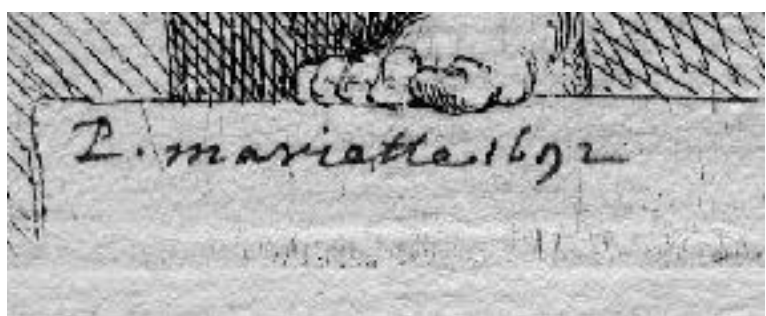 P. mariette 1692